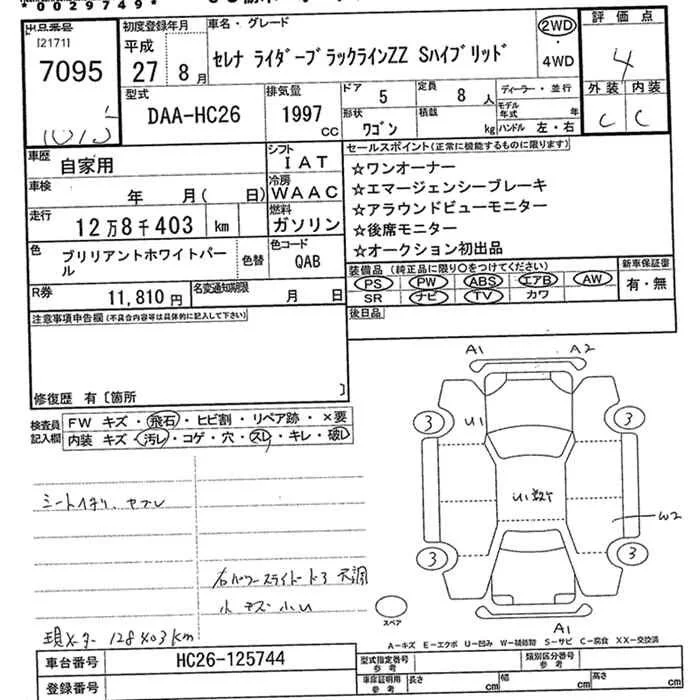 *0029749*
出品番号
[2171]
7095
初度登録年月
平成
27年8月
車名・グレード
セレナ ライダーブラックラインZZ Sハイブリッド
2WD
・
4WD
評価点
4
外装 内装
C C
型式
DAA-HC26
排気量
1997
CC
ドア
5
定員
8 人
ディーラー・並行
モデル年式 年
形状
ワゴン
積載
kg
ハンドル 左・右
車歴
自家用
シフト
IAT
車検
年 月( 日)
冷房
WAAC
走行
12万8千403 km
燃料
ガソリン
色
ブリリアントホワイトパール
色替
色コード
QAB
R券
11,810 円
名変通知期限
月 日
セールスポイント(正常に機能するものに限ります)
☆ワンオーナー
☆エマージェンシーブレーキ
☆アラウンドビューモニター
☆後席モニター
☆オークション初出品
装備品 (純正品に限り○をつけてください)
PS PW ABS エアB AW
SR ナビ TV カワ
新車保証書
有・無
後日品
注意事項申告欄(不具合内容等は具体的に記入して下さい)
修復歴 有〔箇所 〕
検査員記入欄
FW キズ・飛石・ヒビ割・リペア跡・×要
内装 キズ・汚レ・コゲ・穴・スレ・キレ・破レ
右パワースライドドア不調
小キズ小U
現メーター 128403km
A1 A2
3 3
U1
W2
3 3
A1
スペア
A-キズ E-エクボ U-凹み W-補修跡 S-サビ C-腐食 XX-交換済
車台番号
HC26-125744
登録番号
型式指定番号
参考
類別区分番号
参考
車庫証明用
参考
長さ cm
幅 cm
高さ cm